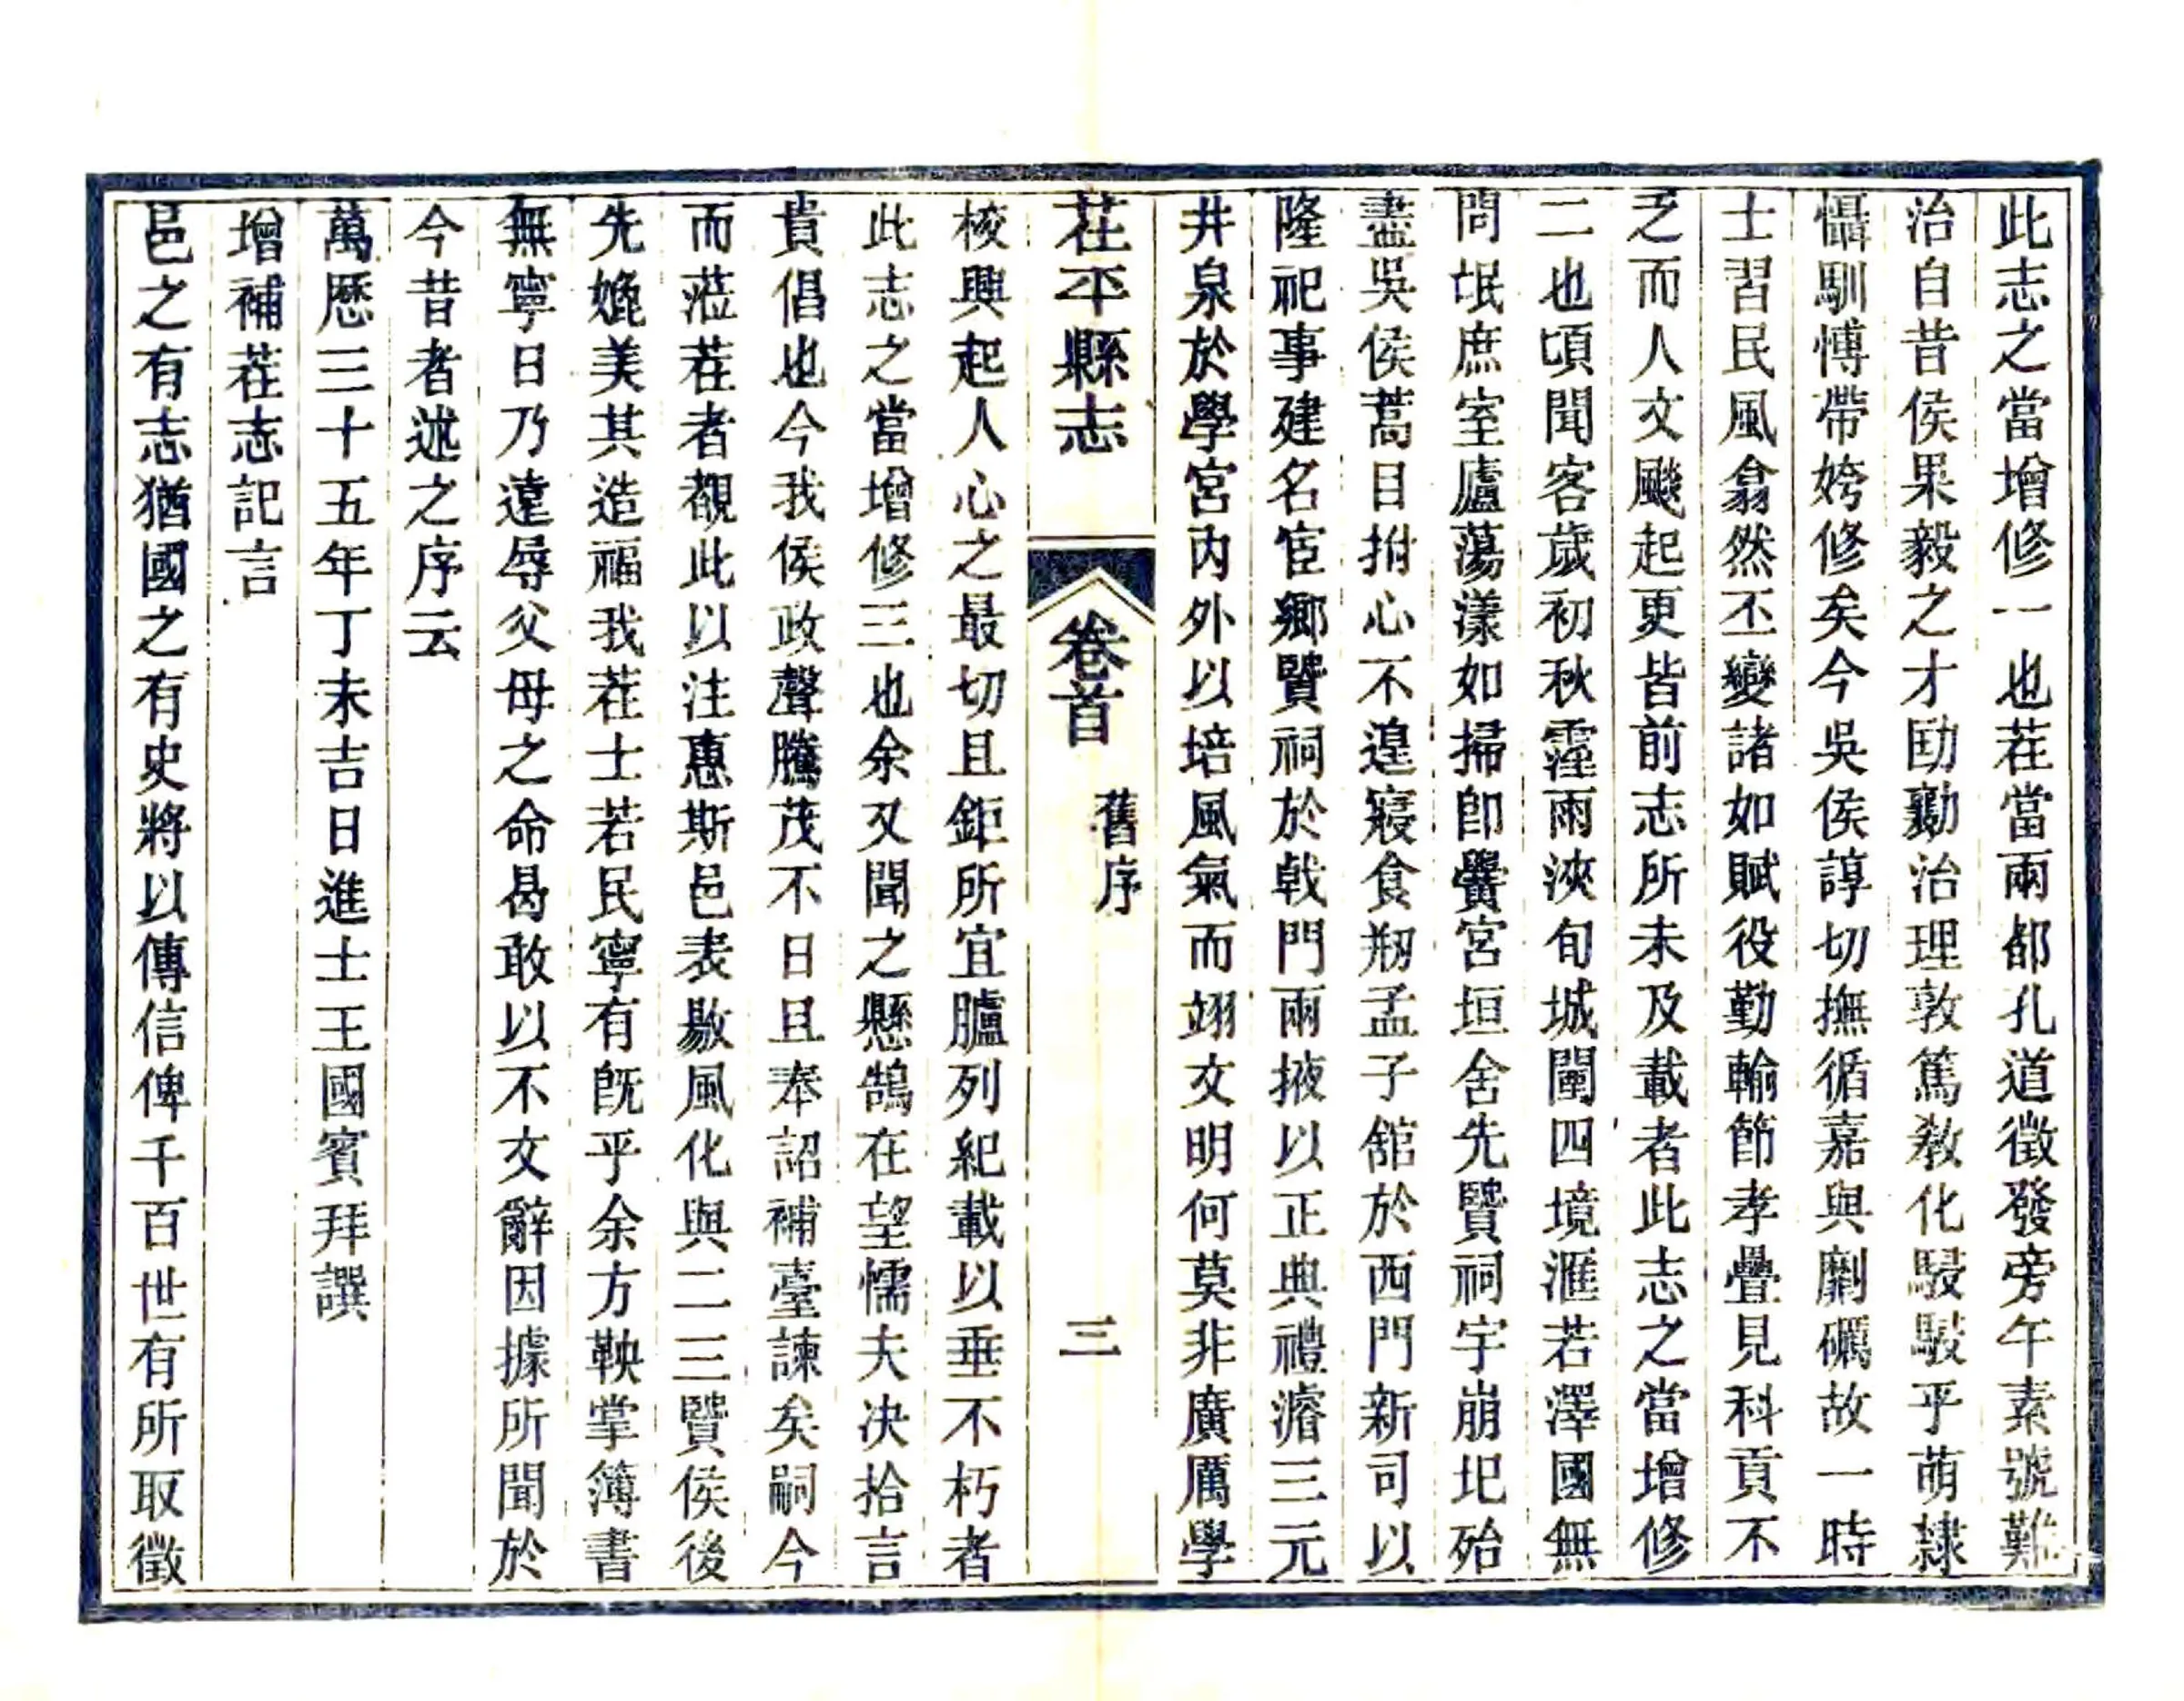 此志之當增修一也茌當兩都孔道徵發旁午素號難
治自昔侯果毅之才劻勷治理敦篤教化駸駸乎萌隸
懾馴愽帶姱修矣今吳侯諄切撫循嘉與劘礪故一時
士習民風翕然丕變諸如賦役勤輸節孝疊見科貢不
乏而人文颷起更皆前志所未及載者此志之當增修
二也頃聞客歲初秋霪雨浹旬城闉四境滙若澤國無
問氓庶室廬蕩漾如掃卽黌宮垣舍先賢祠宇崩圯殆
盡吳侯蒿目拊心不遑寢食剏孟子舘於西門新司以
隆祀事建名宦鄉賢祠於戟門兩掖以正典禮濬三元
井泉於學宮內外以培風氣而翊文明何莫非廣厲學
茌平縣志 卷首 舊序 三
校興起人心之最切且鉅所宜臚列紀載以垂不朽者
此志之當增修三也余又聞之懸鵠在望懦夫决拾言
貴倡也今我侯政聲騰茂不日且奉詔補臺諫矣嗣今
而蒞茌者覩此以注惠斯邑表敭風化與二三賢侯後
先媲美其造福我茌士若民寧有旣乎余方鞅掌簿書
無寧日乃遠辱父母之命曷敢以不文辭因據所聞於
今昔者述之序云
萬歷三十五年丁未吉日進士王國賓拜譔
增補茌志記言
邑之有志猶國之有史將以傳信俾千百世有所取徵